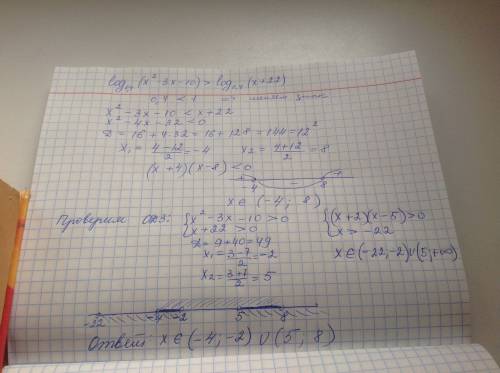 log₀,₄ (x² - 3x - 10) > log₀,₄ (x + 22)
0,4 < 1 => меняем знак
x² - 3x - 10 < x + 22
x² - 4x - 32 < 0
D = 16 + 4·32 = 16 + 128 = 144 = 12²
x₁ = (4 - 12)/2 = -4 x₂ = (4 + 12)/2 = 8
(x + 4)(x - 8) < 0
+ - +
-4 8
x ∈ (-4; 8)
Проверим ОДЗ: { x² - 3x - 10 > 0 { (x + 2)(x - 5) > 0
x + 22 > 0 x > -22
D = 9 + 40 = 49 x ∈ (-22, -2) ∪ (5; +∞)
x₁ = (3 - 7)/2 = -2
x₂ = (3 + 7)/2 = 5
-22 -4 -2 5 8
Ответ: x ∈ (-4, -2) ∪ (5; 8)